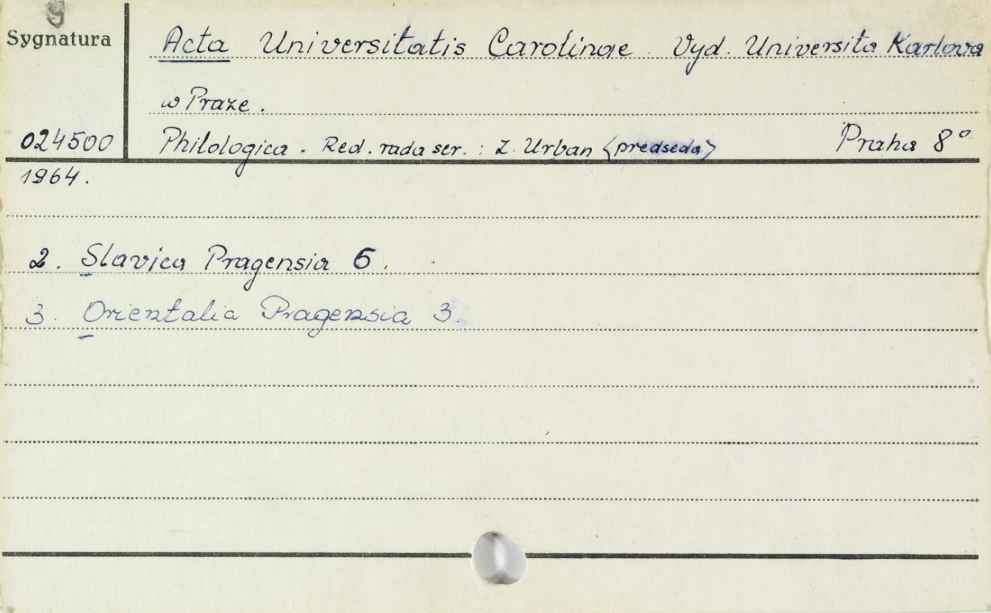 Sygnatura
Acta Universitatis Carolinae. Vyd. Universita Karlova
w Praze.
024500
Philologica. Red. rada ser.: Z. Urban <predseda> Praha 8°
1964.
2. Slavica Pragensia 6.
3. Orientalia Pragensia 3.